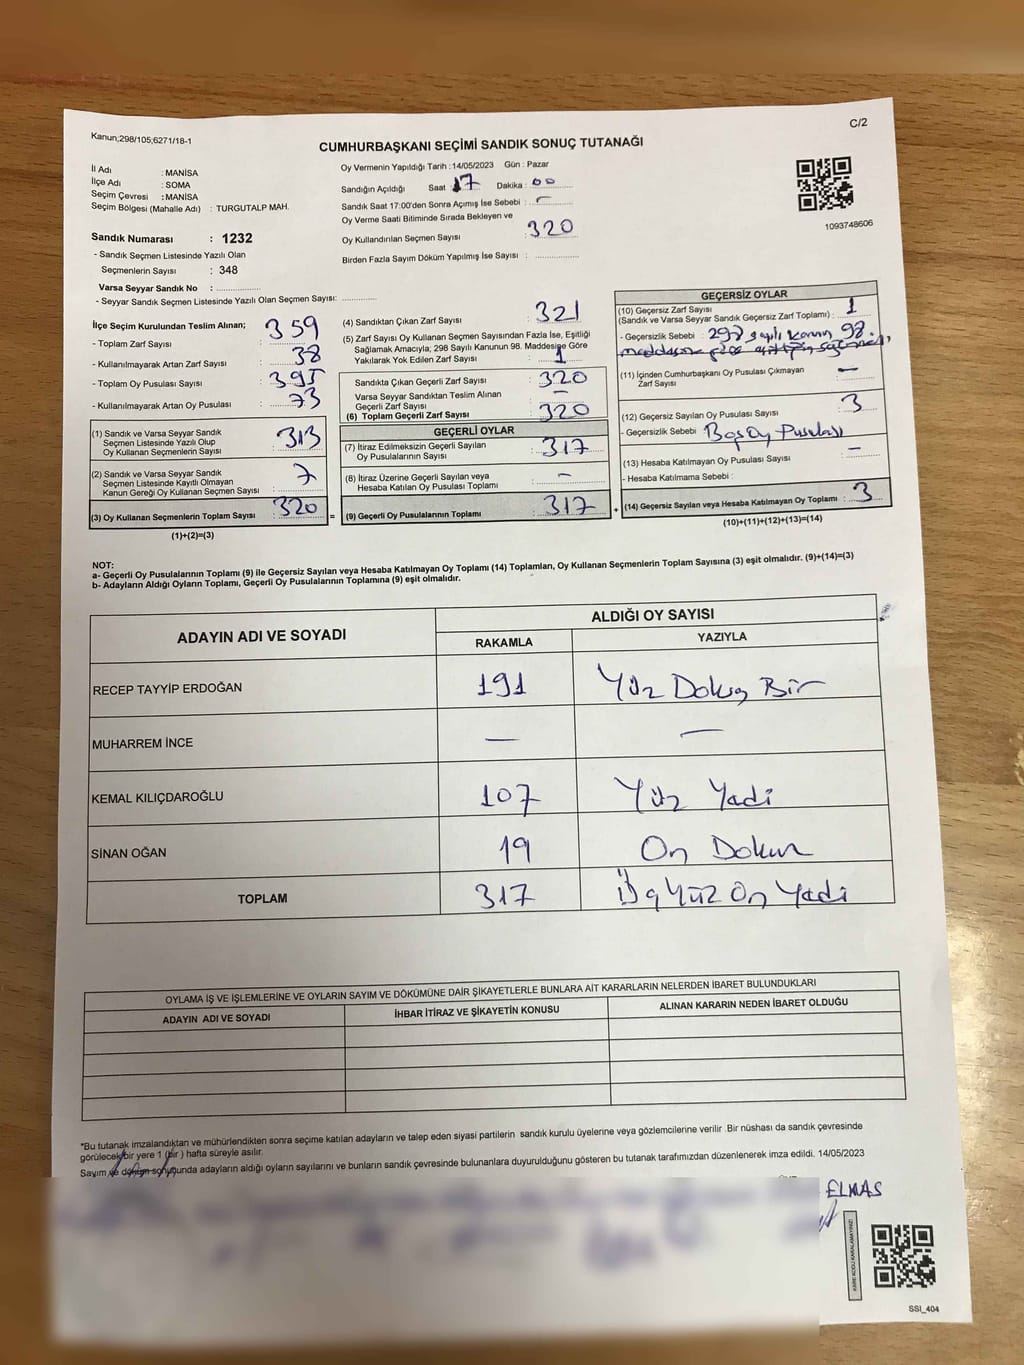 Kanun;298/105;6271/18-1
C/2
CUMHURBAŞKANI SEÇİMİ SANDIK SONUÇ TUTANAĞI
İl Adı : MANİSA
İlçe Adı : SOMA
Seçim Çevresi : MANİSA
Seçim Bölgesi (Mahalle Adı) : TURGUTALP MAH.
Oy Vermenin Yapıldığı Tarih :14/05/2023 Gün : Pazar
Sandığın Açıldığı Saat : 17 Dakika : 00
Sandık Saat 17:00'den Sonra Açımış İse Sebebi : -
Oy Verme Saati Bitiminde Sırada Bekleyen ve
Oy Kullandırılan Seçmen Sayısı : 320
Birden Fazla Sayım Döküm Yapılmış İse Sayısı :
1093748606
Sandık Numarası : 1232
- Sandık Seçmen Listesinde Yazılı Olan
Seçmenlerin Sayısı : 348
Varsa Seyyar Sandık No :
- Seyyar Sandık Seçmen Listesinde Yazılı Olan Seçmen Sayısı:
İlçe Seçim Kurulundan Teslim Alınan;
- Toplam Zarf Sayısı : 359
- Kullanılmayarak Artan Zarf Sayısı : 38
- Toplam Oy Pusulası Sayısı : 395
- Kullanılmayarak Artan Oy Pusulası : 73
(1) Sandık ve Varsa Seyyar Sandık
Seçmen Listesinde Yazılı Olup
Oy Kullanan Seçmenlerin Sayısı : 313
(2) Sandık ve Varsa Seyyar Sandık
Seçmen Listesinde Kayıtlı Olmayan
Kanun Gereği Oy Kullanan Seçmen Sayısı : 7
(3) Oy Kullanan Seçmenlerin Toplam Sayısı : 320 =
(1)+(2)=(3)
(4) Sandıktan Çıkan Zarf Sayısı : 321
(5) Zarf Sayısı Oy Kullanan Seçmen Sayısından Fazla İse, Eşitliği
Sağlamak Amacıyla; 298 Sayılı Kanunun 98. Maddesine Göre
Yakılarak Yok Edilen Zarf Sayısı : 1
Sandıkta Çıkan Geçerli Zarf Sayısı : 320
Varsa Seyyar Sandıktan Teslim Alınan
Geçerli Zarf Sayısı : -
(6) Toplam Geçerli Zarf Sayısı : 320
GEÇERLİ OYLAR
(7) İtiraz Edilmeksizin Geçerli Sayılan
Oy Pusulalarının Sayısı : 317
(8) İtiraz Üzerine Geçerli Sayılan veya
Hesaba Katılan Oy Pusulası Toplamı : -
(9) Geçerli Oy Pusulalarının Toplamı : 317 +
GEÇERSİZ OYLAR
(10) Geçersiz Zarf Sayısı
(Sandık ve Varsa Seyyar Sandık Geçersiz Zarf Toplamı) : 1
- Geçersizlik Sebebi : 298 sayılı kanun 98.
(11) İçinden Cumhurbaşkanı Oy Pusulası Çıkmayan
Zarf Sayısı : -
(12) Geçersiz Sayılan Oy Pusulası Sayısı : 3
- Geçersizlik Sebebi : Boş Oy Pusulası
(13) Hesaba Katılmayan Oy Pusulası Sayısı : -
- Hesaba Katılmama Sebebi :
(14) Geçersiz Sayılan veya Hesaba Katılmayan Oy Toplamı : 3
(10)+(11)+(12)+(13)=(14)
NOT:
a- Geçerli Oy Pusulalarının Toplamı (9) ile Geçersiz Sayılan veya Hesaba Katılmayan Oy Toplamı (14) Toplamları, Oy Kullanan Seçmenlerin Toplam Sayısına (3) eşit olmalıdır. (9)+(14)=(3)
b- Adayların Aldığı Oyların Toplamı, Geçerli Oy Pusulalarının Toplamına (9) eşit olmalıdır.
ADAYIN ADI VE SOYADI ALDIĞI OY SAYISI
RAKAMLA YAZIYLA
RECEP TAYYİP ERDOĞAN 191 Yüz Doksan Bir
MUHARREM İNCE — —
KEMAL KILIÇDAROĞLU 107 Yüz Yedi
SİNAN OĞAN 19 On Dokuz
TOPLAM 317 Üç Yüz On Yedi
OYLAMA İŞ VE İŞLEMLERİNE VE OYLARIN SAYIM VE DÖKÜMÜNE DAİR ŞİKAYETLERLE BUNLARA AİT KARARLARIN NELERDEN İBARET BULUNDUKLARI
ADAYIN ADI VE SOYADI İHBAR İTİRAZ VE ŞİKAYETİN KONUSU ALINAN KARARIN NEDEN İBARET OLDUĞU
*Bu tutanak imzalandıktan ve mühürlendikten sonra seçime katılan adayların ve talep eden siyasi partilerin sandık kurulu üyelerine veya gözlemcilerine verilir .Bir nüshası da sandık çevresinde
görülecek bir yere 1 (bir ) hafta süreyle asılır.
Sayım ve döküm sonucunda adayların aldığı oyların sayılarını ve bunların sandık çevresinde bulunanlara duyurulduğunu gösteren bu tutanak tarafımızdan düzenlenerek imza edildi. 14/05/2023
ELMAS
KARE KODU KARALAMAYINIZ!
SSI_404